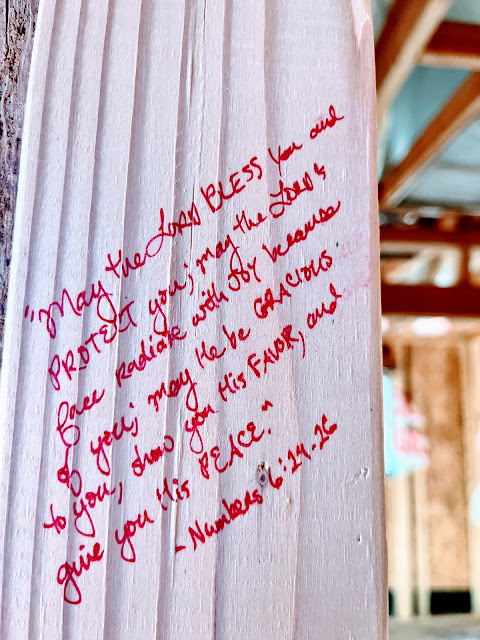 "May the LORD BLESS You and
PROTECT you; may the LORD's
face radiate with JOY because
of you; may He be GRACIOUS
to you, show you His FAVOR, and
give you His PEACE."
- Numbers 6:24-26